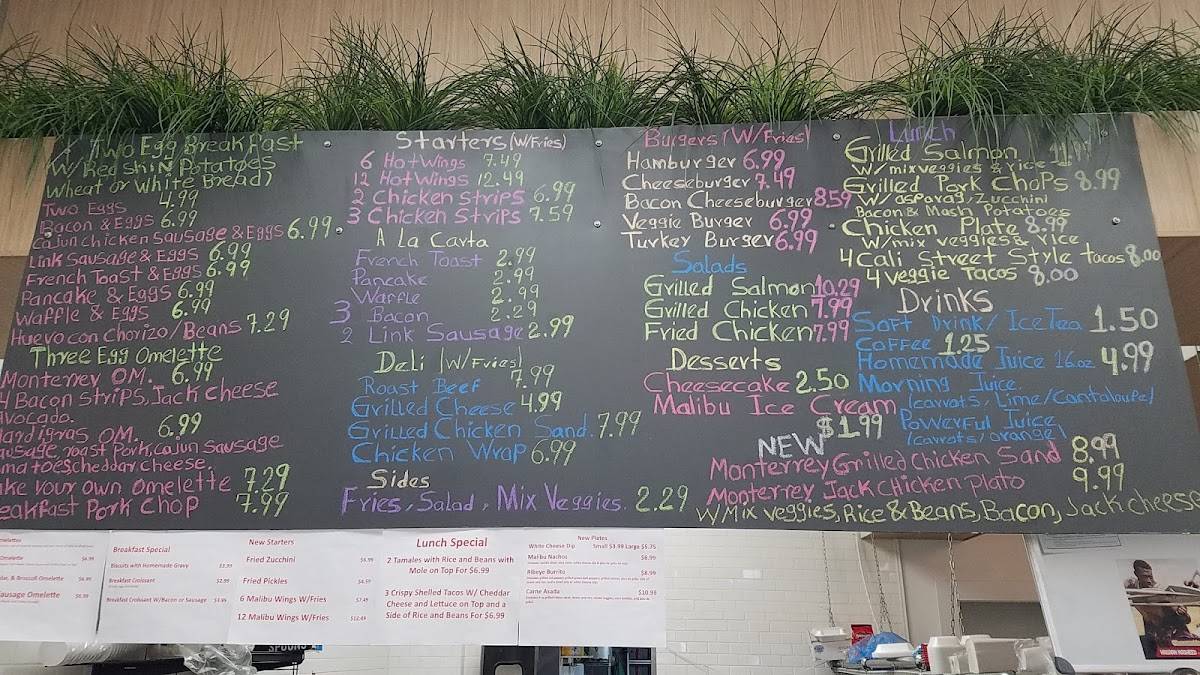 Two Egg Breakfast
W/ Red Skin Potatoes
Wheat or White Bread)
Two Eggs 4.99
Bacon & Eggs 6.99
Cajun Chicken Sausage & Eggs 6.99
Link Sausage & Eggs 6.99
French Toast & Eggs 6.99
Pancake & Eggs 6.99
Waffle & Eggs 6.99
Huevo con Chorizo/Beans 7.29
Three Egg Omelette
Monterrey OM. 6.99
4 Bacon Strips, Jack Cheese
Avocado.
Mardigras OM. 6.99
sausage, roast Pork, cajun sausage
matoes, cheddar cheese.
ake your own Omelette 7.29
eakfast Pork Chop 7.99
Starters (W/Fries)
6 Hot Wings 7.49
12 Hot Wings 12.49
2 Chicken Strips 6.99
3 Chicken Strips 7.59
A La Carta
French Toast 2.99
Pancake 2.99
Warfle 2.99
3 Bacon 2.29
2 Link Sausage 2.99
Deli (W/Fries)
Roast Beef 7.99
Grilled Cheese 4.99
Grilled Chicken Sand. 7.99
Chicken Wrap 6.99
Sides
Fries, Salad, Mix Veggies. 2.29
Burgers (W/Fries)
Hamburger 6.99
Cheeseburger 7.49
Bacon Cheeseburger 8.59
Veggie Burger 6.99
Turkey Burger 6.99
Salads
Grilled Salmon 10.29
Grilled Chicken 7.99
Fried Chicken 7.99
Desserts
Cheesecake 2.50
Malibu Ice Cream
$1.99
Lunch
Grilled Salmon
W/ mix veggies & rice
Grilled Pork Chops 8.99
W/ asparag, Zucchini
Bacon & Mash Potatoes
Chicken Plate 8.99
W/mix veggies & rice
4 Cali Street Style tacos 8.00
4 veggie Tacos 8.00
Drinks
Soft Drink/Ice Tea 1.50
Coffee 1.25
Homemade Juice 16oz 4.99
Morning Juice
(carrots, Lime/Cantaloupe)
Powerful Juice
(carrots/orange)
NEW
Monterrey Grilled Chicken Sand 8.99
Monterrey Jack Chicken Plato 9.99
W/Mix veggies, Rice & Beans, Bacon, Jack cheese
Breakfast Special
Biscuits with Homemade Gravy $3.99
Breakfast Croissant $2.99
Breakfast Croissant W/Bacon or Sausage
New Starters
Fried Zucchini $6.99
Fried Pickles
6 Malibu Wings W/Fries $7.49
12 Malibu Wings W/Fries $12.49
Lunch Special
2 Tamales with Rice and Beans with
Mole on Top For $6.99
3 Crispy Shelled Tacos W/ Cheddar
Cheese and Lettuce on Top and a
Side of Rice and Beans For $6.99
New Plates
White Cheese Dip Small $3.99 Large $5.75
Malibu Nachos $6.99
Ribeye Burrito $8.99
Carne Asada $10.99